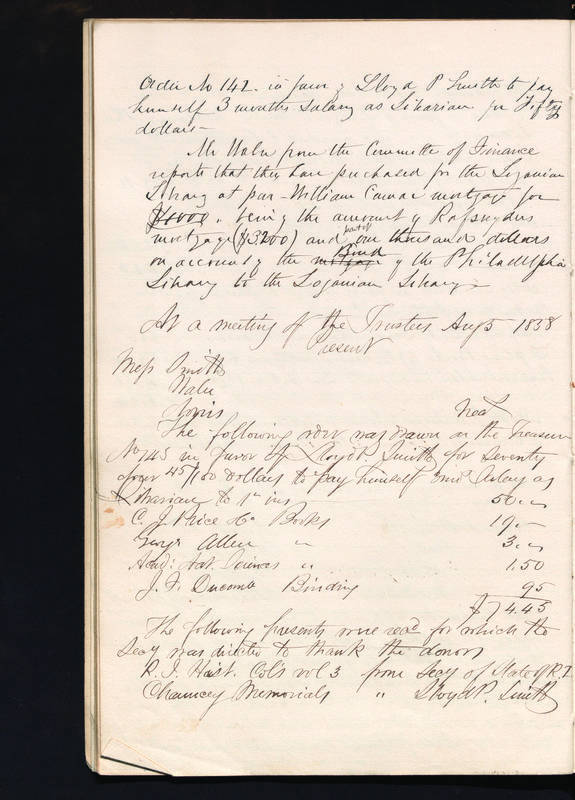 Order No 142. in favor of Lloyd P Smith to pay
himself 3 months Salary as Librarian for Fifty
dollars—
Mr Waln from the Committee of Finance
reports that they have purchased for the Loganian
Library at par – William Camac mortgage for
$4000. being the amount of Rafsnyders
mortgage ($3200) and part of one thousand dollars
on account of the mortgage Bond of the Philadelphia
Library to the Loganian Library –
At a meeting of the Trustees Aug 5 1858
Present
Mess Smith
Waln
Norris
The following order was drawn on the Treasurer
No 143 in favor of Lloyd P. Smith for Seventy
four 45/100 Dollars to pay himself Salary as
Librarian to 1st ins 50.
C. J. Price & Co Books 19.
George Allen " 3.
Acad: Nat. Sciences " 1.50
J. F. Ducomb Binding 95
$74.45
The following presents were recd for which the
Secy was directed to thank the donors
R. I. Hist. Col's vol 3 from Secy of State of R. I
Chauncey Memorials " Lloyd P. Smith